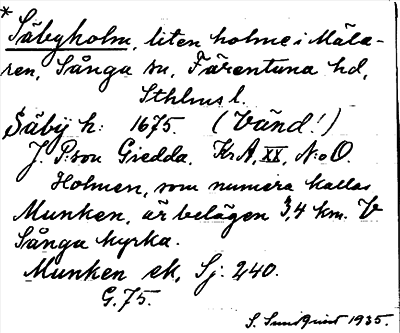 * Säbyholm, liten holme i Mäla-
ren, Sånga sn, Färentuna hd,
Sthlms l.
Säby h: 1675. (Vänd!)
J. P:son Gredda. KrA, XX, N:o O.
Holmen, som numera kallas
Munken, är belägen 3,4 km. V
Sånga kyrka.
Munken ek, Sj. 240.
G. 75.
S. Sundquist 1935.